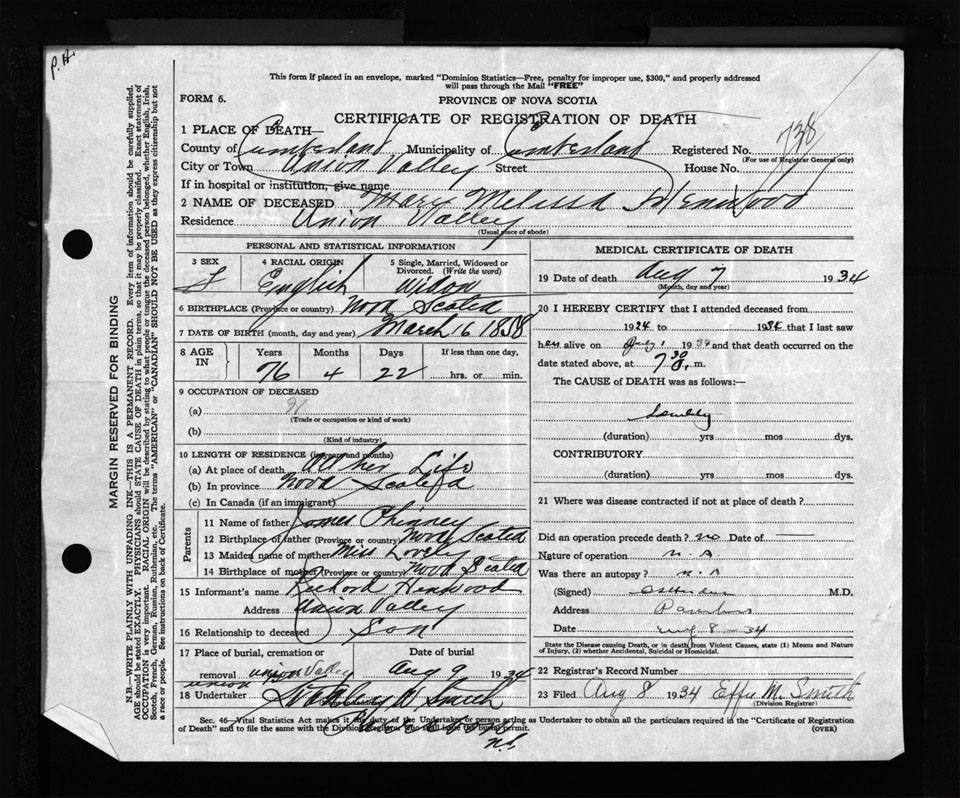 P.H.
This form if placed in an envelope, marked "Dominion Statistics—Free, penalty for improper use, $300," and properly addressed
will pass through the Mail "FREE"
FORM 6.
PROVINCE OF NOVA SCOTIA
CERTIFICATE OF REGISTRATION OF DEATH
738
1 PLACE OF DEATH—
County of Cumberland Municipality of Cumberland Registered No.
(For use of Registrar General only)
City or Town Union Valley Street House No.
If in hospital or institution, give name
2 NAME OF DECEASED Mary Melissa Henwood
Residence Union Valley
(Usual place of abode)
PERSONAL AND STATISTICAL INFORMATION
3 SEX
f
4 RACIAL ORIGIN
English
5 Single, Married, Widowed or Divorced. (Write the word)
Widow
6 BIRTHPLACE (Province or country) Nova Scotia
7 DATE OF BIRTH (month, day and year) March 16 1858
8 AGE IN
Years Months Days If less than one day,
76 4 22 hrs. or min.
9 OCCUPATION OF DECEASED
(a)
(Trade or occupation or kind of work)
(b)
(Kind of industry)
10 LENGTH OF RESIDENCE (in years and months)
(a) At place of death All her Life
(b) In province Nova Scotia
(c) In Canada (if an immigrant)
Parents
11 Name of father James Phinney
12 Birthplace of father (Province or country) Nova Scotia
13 Maiden name of mother Miss Lovely
14 Birthplace of mother (Province or country) Nova Scotia
15 Informant's name Richard Henwood
Address Union Valley
16 Relationship to deceased Son
17 Place of burial, cremation or removal Union Valley
Date of burial
Aug 9 1934
18 Undertaker Smith
N.S.
MEDICAL CERTIFICATE OF DEATH
19 Date of death Aug 7 1934
(Month, day and year)
20 I HEREBY CERTIFY that I attended deceased from
1924 to 1934 that I last saw
her alive on 1934 and that death occurred on the
date stated above, at 7 30 m.
The CAUSE of DEATH was as follows:—
Senility
(duration) yrs mos dys.
CONTRIBUTORY
(duration) yrs mos dys.
21 Where was disease contracted if not at place of death?
Did an operation precede death? no Date of
Nature of operation N. A
Was there an autopsy?
(Signed) M.D.
Address
Date Aug 8 - 34
State the Disease causing Death, or in death from Violent Causes, state (1) Means and Nature
of Injury, (2) whether Accidental, Suicidal or Homicidal.
22 Registrar's Record Number
23 Filed Aug 8 1934 Effie M. Smith
(Division Registrar)
Sec. 46—Vital Statistics Act makes it the duty of the Undertaker or person acting as Undertaker to obtain all the particulars required in the "Certificate of Registration
of Death" and to file the same with the Division Registrar who shall issue the burial permit.
(OVER)
MARGIN RESERVED FOR BINDING
N.B.—WRITE PLAINLY WITH UNFADING INK—THIS IS A PERMANENT RECORD. Every item of information should be carefully supplied.
AGE should be stated EXACTLY. PHYSICIANS should STATE CAUSE OF DEATH in plain terms, so that it may be properly classified. Exact statement of
OCCUPATION is very important. RACIAL ORIGIN will be described by stating to what people or tongue the deceased person belonged, whether English, Irish,
Scotch, French, German, Russian, Ruthenian, etc. The terms "AMERICAN" or "CANADIAN" SHOULD NOT BE USED as they express citizenship but not
a race or people. See instructions on back of Certificate.